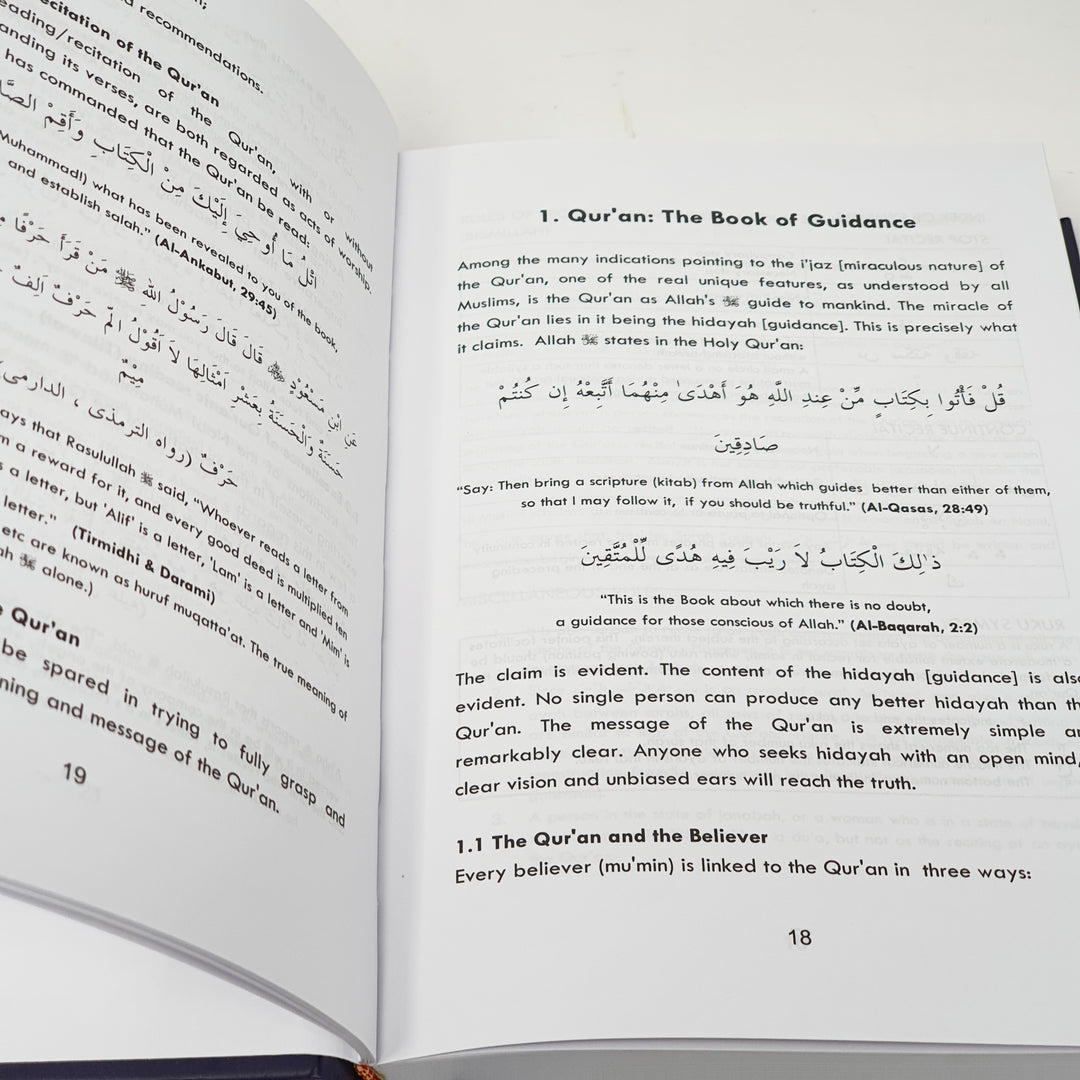 1. Qur'an: The Book of Guidance
Among the many indications pointing to the i'jaz [miraculous nature] of
the Qur'an, one of the real unique features, as understood by all
Muslims, is the Qur'an as Allah's ﷻ guide to mankind. The miracle of
the Qur'an lies in it being the hidayah [guidance]. This is precisely what
it claims. Allah ﷻ states in the Holy Qur'an:
قُلْ فَأْتُوا بِكِتَابٍ مِّنْ عِندِ اللَّهِ هُوَ أَهْدَىٰ مِنْهُمَا أَتَّبِعْهُ إِن كُنتُمْ
صَادِقِينَ
“Say: Then bring a scripture (kitab) from Allah which guides better than either of them,
so that I may follow it, if you should be truthful.” (Al-Qasas, 28:49)
ذٰلِكَ الْكِتَابُ لاَ رَيْبَ فِيهِ هُدًى لِّلْمُتَّقِينَ
“This is the Book about which there is no doubt,
a guidance for those conscious of Allah.” (Al-Baqarah, 2:2)
The claim is evident. The content of the hidayah [guidance] is also
evident. No single person can produce any better hidayah than th
Qur'an. The message of the Qur'an is extremely simple an
remarkably clear. Anyone who seeks hidayah with an open mind,
clear vision and unbiased ears will reach the truth.
1.1 The Qur'an and the Believer
Every believer (mu'min) is linked to the Qur'an in three ways:
18
recommendations.
ecitation of the Qur'an
eading/recitation of the Qur'an, with or without
anding its verses, are both regarded as acts of worship.
has commanded that the Qur'an be read:
اتْلُ مَا أُوحِيَ إِلَيْكَ مِنَ الْكِتَابِ وَأَقِمِ
Muhammad!) what has been revealed to you of the book,
and establish salah.” (Al-Ankabut, 29:45)
عَنِ ابْنِ مَسْعُوْدٍ ﷺ قَالَ قَالَ رَسُوْلُ اللهِ ﷺ مَنْ قَرَأَ حَرْفًا
حَسَنَةٌ وَالْحَسَنَةُ بِعَشْرِ اَمْثَالِهَا لاَ اَقُوْلُ الٓمّ حَرْفٌ اَلِفٌ
حَرْفٌ مِيْمٌ
حَرْفٌ (رواه الترمذى ، الدارمى)
ays that Rasulullah ﷺ said, “Whoever reads a letter from
a reward for it, and every good deed is multiplied ten
a letter, but 'Alif' is a letter, 'Lam' is a letter and 'Mim' is
letter.” (Tirmidhi & Darami)
etc are known as huruf muqatta'at. The true meaning of
ah ﷻ alone.)
Qur'an
be spared in trying to fully grasp and
ning and message of the Qur'an.
19